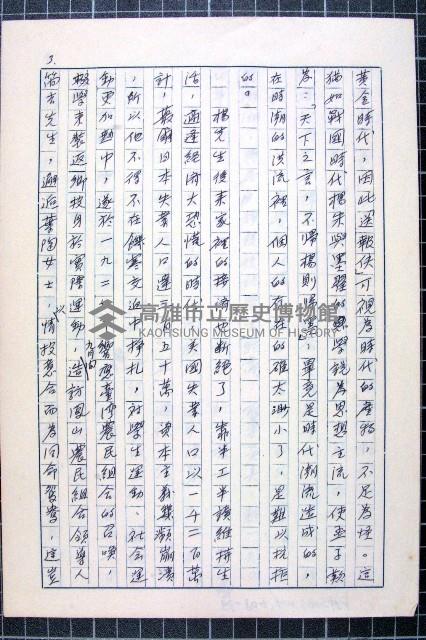 3.
黃金時代，因此送報伕可視為時代的產物，不足為怪。這
猶如戰國時代楊朱與墨翟的學說為思想主流，使孟子歎
為：「天下之言，不歸楊則歸墨」畢竟是時代潮流造成的，
在時潮的洪流裡，個人的存在的確太渺小了，是難以抗拒
的。
楊先生後來家裡的接濟也斷絕了，靠半工半讀維持生
活，適逢經濟大恐慌的時代，美國失業人口以一千三百萬
計，最閣日本失業人口達三百五十萬，資本主義瀕崩潰
，所以他不得不在饑寒交迫中掙扎，對學生運動、社會運
動更加熱中，遂於一九二 響應臺灣農民組合的召喚，
輟學束裝返鄉投身於實際運動，九月間造訪鳳山農民組合領導人
簡吉先生，邂逅葉陶女士，以情投意合而為同命鴛鴦，這豈
高雄市立歷史博物館
KAOHSIUNG MUSEUM OF HISTORY